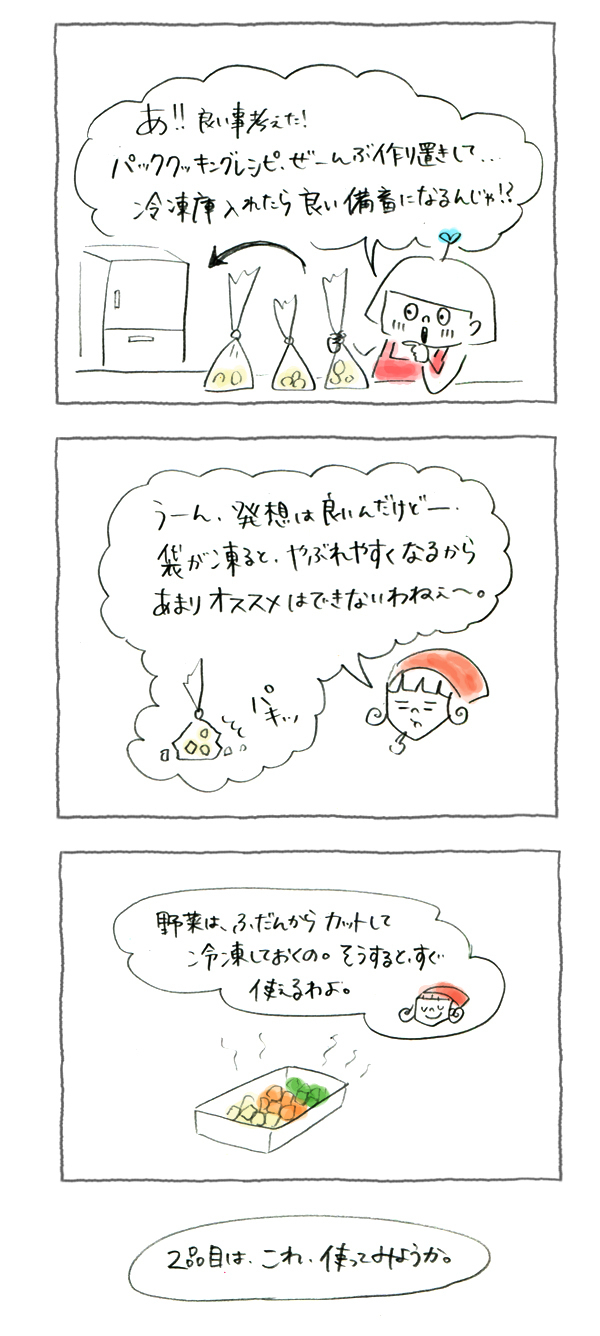 あ!! 良い事考えた!
パッククッキングレシピ、ぜーんぶ作り置きして...
冷凍庫入れたら良い備蓄になるんじゃ!?
うーん、発想は良いんだけどー、
袋が凍ると、やぶれやすくなるから
あまりオススメはできないわねぇ〜。
パキッ
野菜は、ふだんからカットして
冷凍しておくの。そうすると、すぐ
使えるわよ。
2品目は、これ、使ってみようか。